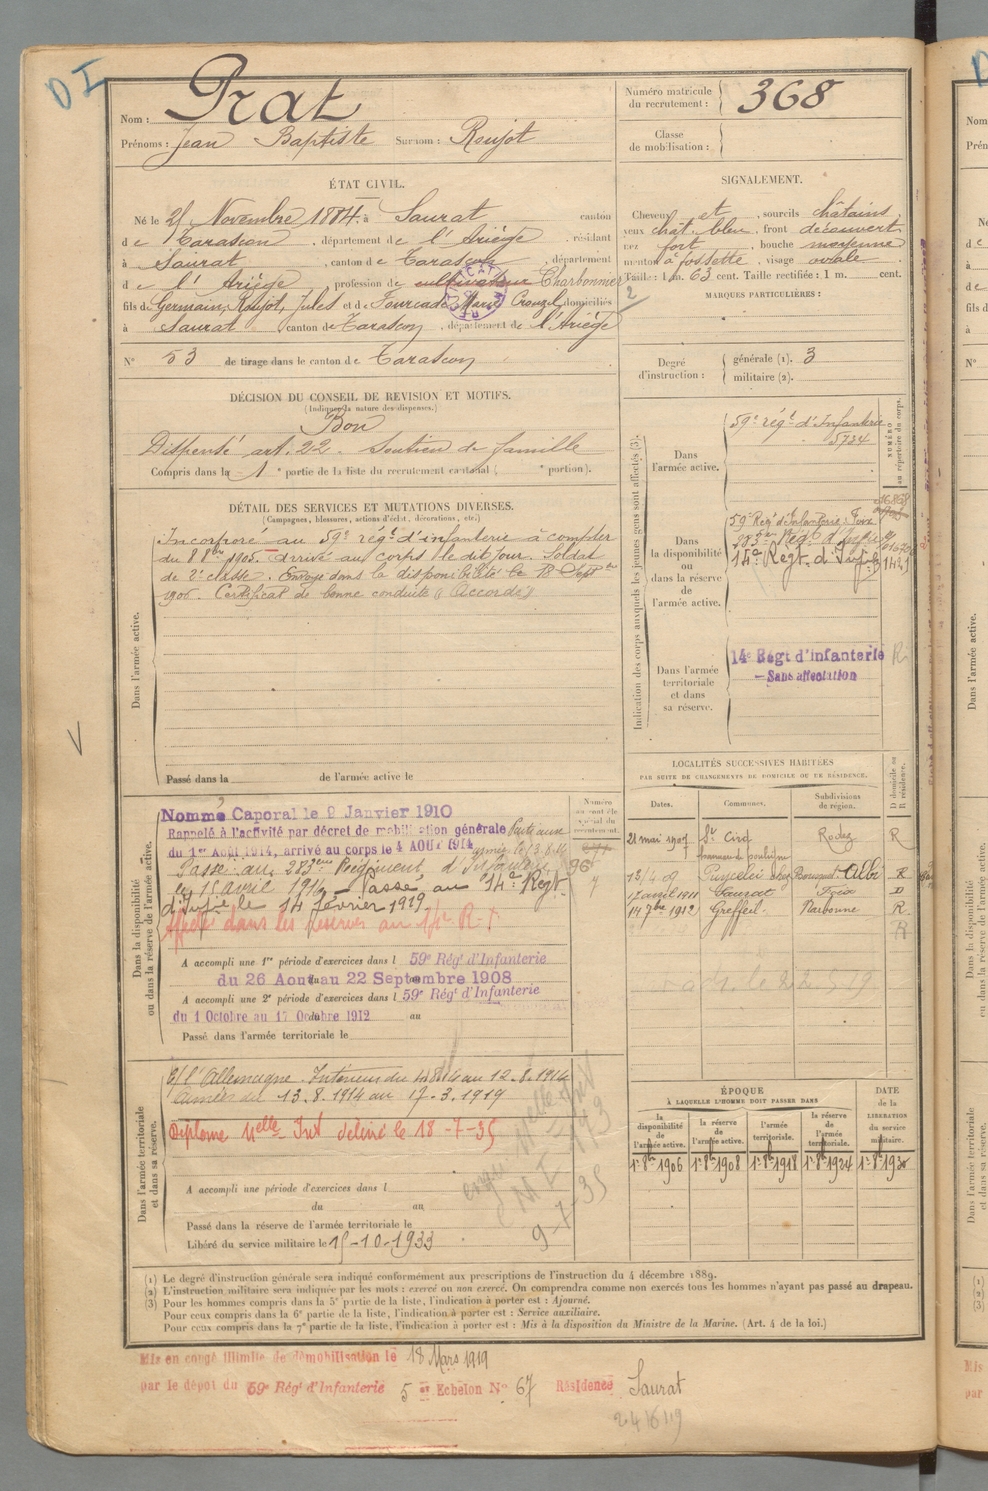 D I
Nom : Prat
Prénoms : Jean Baptiste Surnom : Roujot
Numéro matricule du recrutement : 368
Classe de mobilisation :
ÉTAT CIVIL.
Né le Novembre 1884, à Saurat canton
de Tarascon, département de l'Ariège, résidant
à Saurat, canton de Tarascon, département
de l'Ariège, profession de cultivateur Charbonnier
fils de Germain, Roujot, Jules et de Fourcade Marie Crouzel, domiciliés
à Saurat canton de Tarascon, département de l'Ariège
N° 53 de tirage dans le canton de Tarascon
SIGNALEMENT.
Cheveux et, sourcils châtains,
yeux chât. bleu, front découvert
nez fort, bouche moyenne
menton à fossette, visage ovale
Taille : 1 m. 63 cent. Taille rectifiée : 1 m. cent.
2
MARQUES PARTICULIÈRES :
Degré d'instruction :
générale (1). 3
militaire (2).
DÉCISION DU CONSEIL DE REVISION ET MOTIFS.
(Indiquer la nature des dispenses.)
Bon
Dispensé art. 22. Soutien de famille
Compris dans la 1e partie de la liste du recrutement cantonal ( e portion).
DÉTAIL DES SERVICES ET MUTATIONS DIVERSES.
(Campagnes, blessures, actions d'éclat, décorations, etc.)
Dans l'armée active.
Incorporé au 59e régt d'infanterie à compter
du 8 8bre 1905. arrivé au corps le dit jour. Soldat
de 2e classe. Envoyé dans la disponibilité le 18 Septbre
1906. Certificat de bonne conduite "Accordé"
Passé dans la de l'armée active le
Indication des corps auxquels les jeunes gens sont affectés (3).
NUMÉRO au répertoire du corps.
Dans l'armée active.
59e régt d'Infanterie
5734
Dans la disponibilité ou dans la réserve de l'armée active.
59e Régt d'Infanterie : Foix
283e Régt d'Infie
14e Régt d'Infie 1421
Dans l'armée territoriale et dans sa réserve.
14e Régt d'Infanterie
— Sans affectation
LOCALITÉS SUCCESSIVES HABITÉES
PAR SUITE DE CHANGEMENTS DE DOMICILE OU DE RÉSIDENCE.
Dates. Communes. Subdivisions de région. D domicile ou R résidence.
21 mai 1907 St Cirq Rodez R
13/4 09 Puycelci Albi R
17 avril 1911 Saurat Foix D
14 7bre 1912 Greffeil Narbonne R
R
Dans la disponibilité ou dans la réserve de l'armée active.
Nommé Caporal le 9 Janvier 1910
Rappelé à l'activité par décret de mobilisation générale
du 1er Août 1914, arrivé au corps le 4 AOUT 1914, Parti aux armées le 13.8.14
Passé au 283eme Régiment d'Infanterie
le 15 avril 1914 Passé au 14e Régt
d'Infie le 14 février 1919
Affecté dans les réserves au
A accompli une 1re période d'exercices dans l 59e Régt d'Infanterie
du 26 Aout au 22 Septembre 1908
A accompli une 2e période d'exercices dans l 59e Régt d'Infanterie
du 1 Octobre au 17 Octobre 1912 au
Passé dans l'armée territoriale le
Dans l'armée territoriale et dans sa réserve.
C/ l'Allemagne. Intérieur du 4.8.14 au 12.8.1914
Armées du 13.8.1914 au 17-3.1919
Diplôme Délivré le 18-7-35
9-7-35
A accompli une période d'exercices dans l
du au
Passé dans la réserve de l'armée territoriale le
Libéré du service militaire le 15-10-1933
ÉPOQUE
À LAQUELLE L'HOMME DOIT PASSER DANS
la disponibilité de l'armée active. la réserve de l'armée active. l'armée territoriale. la réserve de l'armée territoriale. DATE de la LIBÉRATION du service militaire.
1er 8bre 1906 1er 8bre 1908 1er 8bre 1918 1er 8bre 1924
(1) Le degré d'instruction générale sera indiqué conformément aux prescriptions de l'instruction du 4 décembre 1889.
(2) L'instruction militaire sera indiquée par les mots : exercé ou non exercé. On comprendra comme non exercés tous les hommes n'ayant pas passé au drapeau.
(3) Pour les hommes compris dans la 5e partie de la liste, l'indication à porter est : Ajourné.
Pour ceux compris dans la 6e partie de la liste, l'indication à porter est : Service auxiliaire.
Pour ceux compris dans la 7e partie de la liste, l'indication à porter est : Mis à la disposition du Ministre de la Marine. (Art. 4 de la loi.)
Mis en congé illimité de démobilisation le 18 Mars 1919
par le dépôt du 59e Régt d'Infanterie 5 e Echelon N° 67 Résidence Saurat